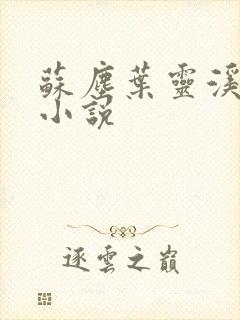 蘇塵葉靈溪
小說
逐雲之巔